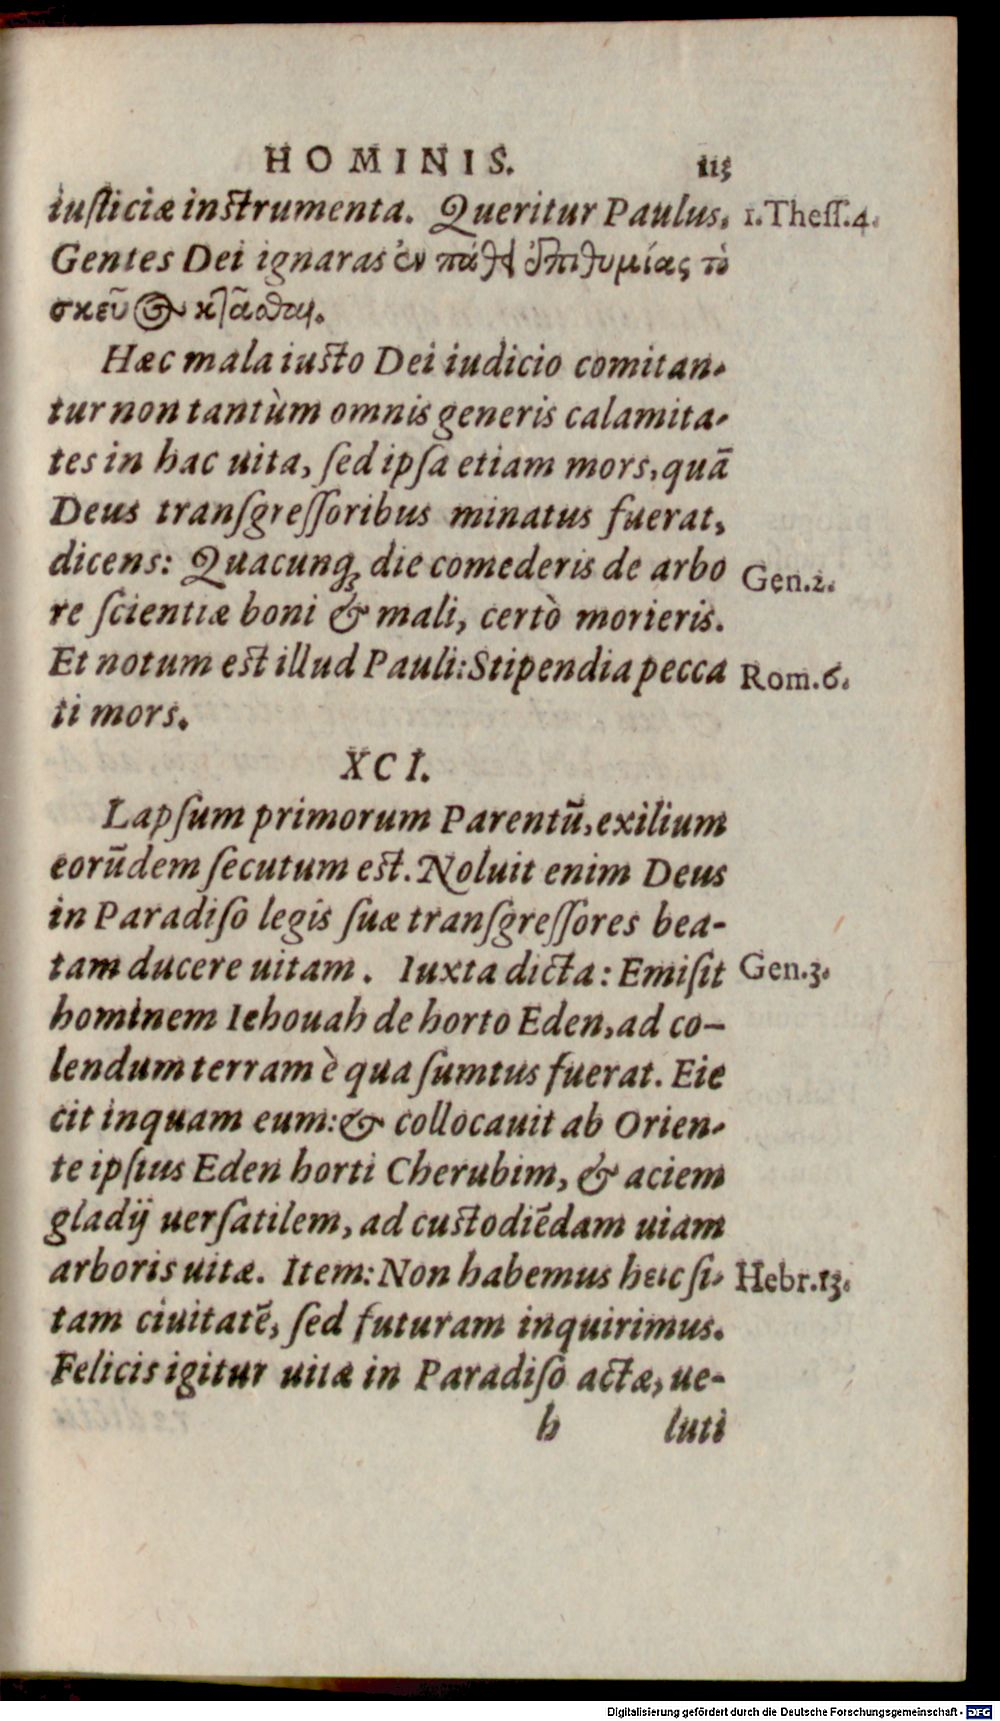 HOMINIS. 113
iuſticiæ inſtrumenta. Queritur Paulus, 1. Theſſ. 4.
Gentes Dei ignaras ἐν πάθει ἐπιθυμίας τὸ
σκεῦος κτᾶσθαι.
Hæc mala iuſto Dei iudicio comitan-
tur non tantùm omnis generis calamita-
tes in hac uita, ſed ipſa etiam mors, quã
Deus tranſgreſſoribus minatus fuerat,
dicens: Quacunqꝫ die comederis de arbo Gen. 2.
re ſcientiæ boni & mali, certò morieris.
Et notum eſt illud Pauli: Stipendia pecca Rom. 6.
ti mors.
XCI.
Lapſum primorum Parentũ, exilium
eorũdem ſecutum eſt. Noluit enim Deus
in Paradiſo legis ſuæ tranſgreſſores bea-
tam ducere uitam. Iuxta dicta: Emiſit Gen. 3.
hominem Iehouah de horto Eden, ad co-
lendum terram è qua ſumtus fuerat. Eie
cit inquam eum: & collocauit ab Orien-
te ipſius Eden horti Cherubim, & aciem
gladij uerſatilem, ad cuſtodiẽdam uiam
arboris uitæ. Item: Non habemus heic ſi- Hebr. 13.
tam ciuitatẽ, ſed futuram inquirimus.
Felicis igitur uitæ in Paradiſo actæ, ue-
h luti
Digitalisierung gefördert durch die Deutsche Forschungsgemeinschaft - DFG